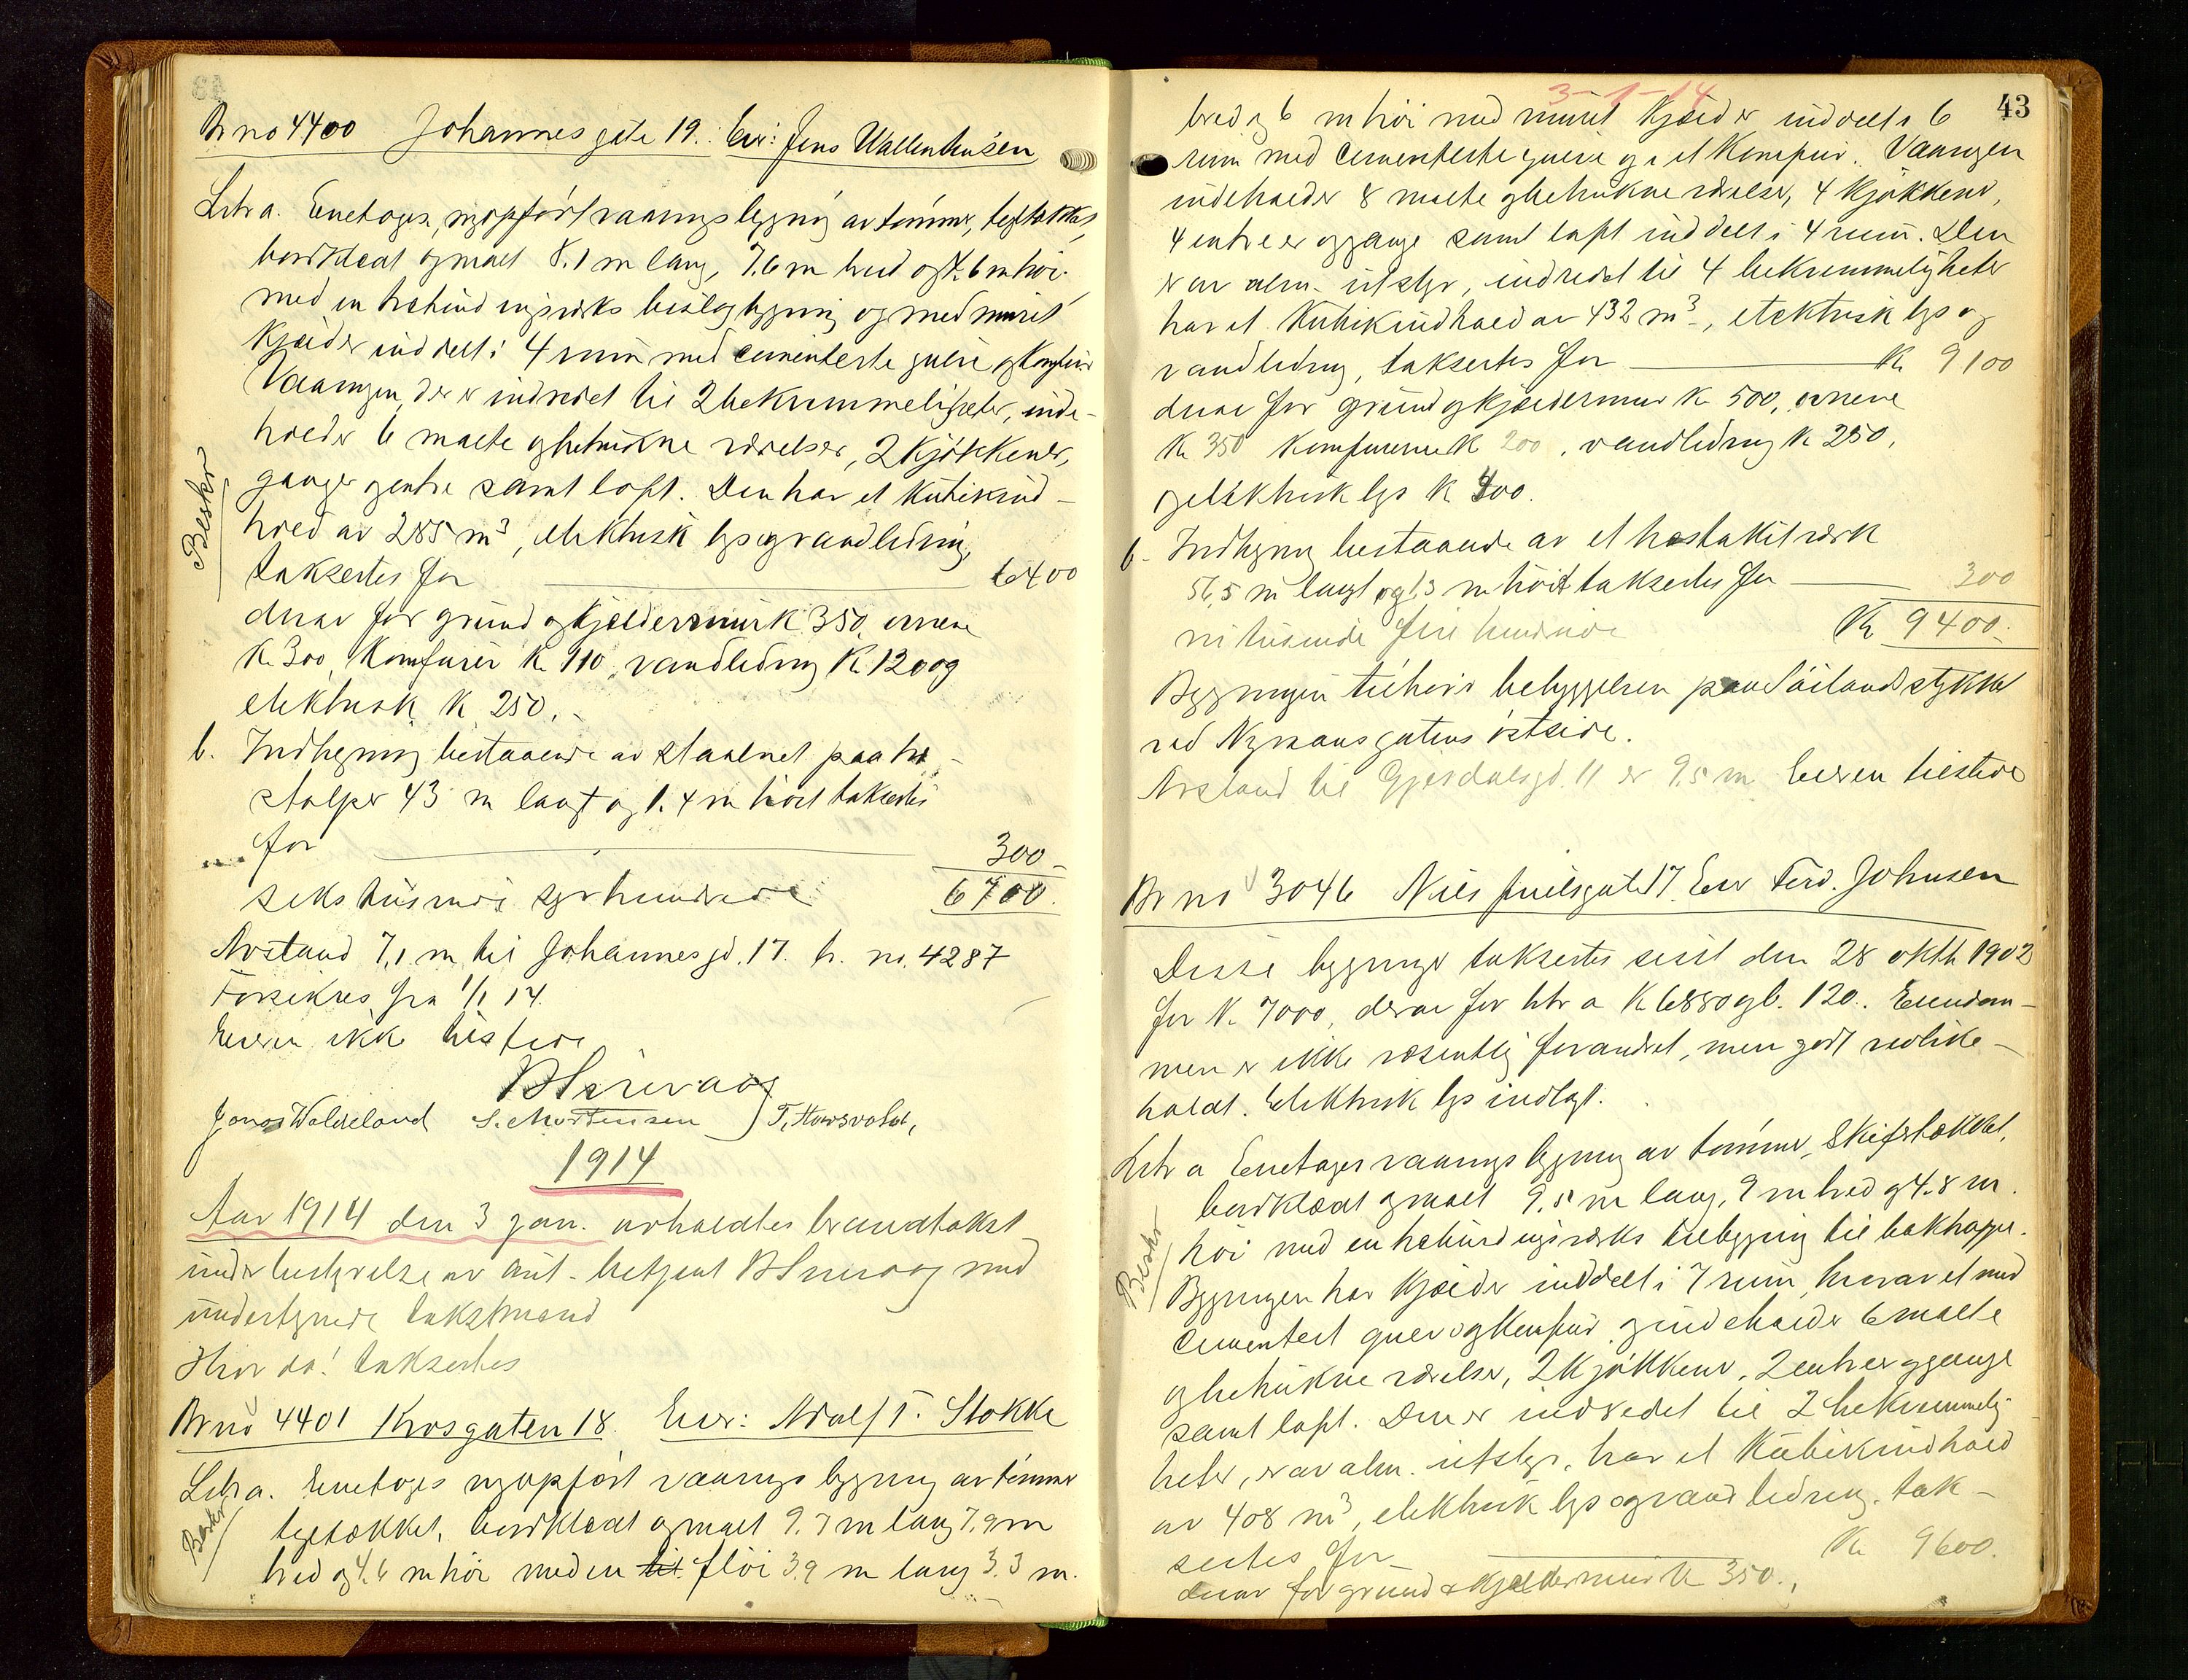 Br no 4400 Johannesgate 19. Eier: Jens Wallenhusen
Litr a. Enetages, nyopført vaaningsbygning av tømmer, tegltækket,
bordklædt og malt 8.1 m lang, 7.6 m bred og 4.6 m høi
med en trebindingsverks bislagbygning og med muret
Kjælder inddelt i 4 rum med cementerte gulve og Komfur
Vaaningen, der er indredet til 2 bekvemmeligheter, inde-
holder 6 malte og betrukne værelser, 2 Kjøkkener,
ganger og entre samt loft. Den har et Kubikind-
hold av 285 m³, elektrisk lys og vandledning,
Beskr
taksertes for 6400
derav for grund og Kjældermur K 350, ovnene
K. 300, Komfurer K. 110, vandledning K. 120 og
elektrisk K 250.
b. Indhegning bestaaende av staalnet paa træ-
stolper 43 m langt og 1.4 m høit taksertes
for 300
sekstusinde syvhundrede 6700.
Avstand 7,1 m til Johannesgd. 17. br. no. 4287
Forsikres fra 1/1 14.
Eieren ikke tilstede
Jonas Waldeland S. Mortensen T. Haarsvold,
1914
Aar 1914 den 3 jan. avholdtes brandtakst
under bestyrelse av aut. betjent med
undertegnede takstmænd
Hvor da! taksertes
Br no 4401 Krosgaten 18. Eier: Adolf T. Stokke
Litr a. Enetages nyopført vaaningsbygning av tømmer
tegltækket, bordklædt og malt 9.7 m lang 7.9 m
Beskr
bred og 4.6 m høi med en til fløi 3.9 m lang 3.3 m.
3-1-14
43
bred og 6 m høi med muret Kjælder inddelt i 6
rum med cementerte gulve og i et Komfur. Vaaningen
indeholder 8 malte og betrukne værelser, 4 Kjøkkener,
4 entreer og gange samt loft inddelt i 4 rum. Den
er av alm. utstyr, indredet til 4 bekvemmeligheter
har et Kubikindhold av 432 m³, elektrisk lys og
vandledning, taksertes for K 9100
derav for grund og kjældermur K 500, ovnene
K 350 Komfurerne K 200, vandledning K 250,
og elektrisk lys K 400.
b. Indhegning bestaaende av et træstakitværk
56,5 m langt og 1.3 m høit taksertes for 300
ni tusinde fire hundrede K 9400.
Bygningen tilhører bebyggelsen paa Vaalandsstykket
ved Nymansgatens østside.
Avstand til Gjesdalsgd. 11 er 9.5 m Eieren tilstede
Br no 3046 Niels Juelsgate 17. Eier Ferd. Johnsen
Disse bygninger taksertes sidst den 28 oktb 1902
for K. 7000, derav for litr a K 6880 og b. 120. Eiendom-
men er ikke væsentlig forandret, men godt vedlike-
holdt. Elektrisk lys indlagt.
Litr a Enetages vaaningsbygning av tømmer, Skifertækket,
bordklædt og malt 9.5 m lang, 9 m bred og 4.8 m.
Beskr
høi med en trebindingsverks tilbygning til baktrappe.
Bygningen har Kjælder inddelt i 7 rum, hvorav et med
cementert gulv og Komfur og indeholder 6 malte
og betrukne værelser, 2 Kjøkkener, 2 entreer og gange
samt loft. Den er indredet til 2 bekvemmelig-
heter, er av alm. utstyr, har et Kubikindhold
av 408 m³, elektrisk lys og vandledning. tak-
sertes for K 9600.
derav for grund & Kjældermur K 350.,